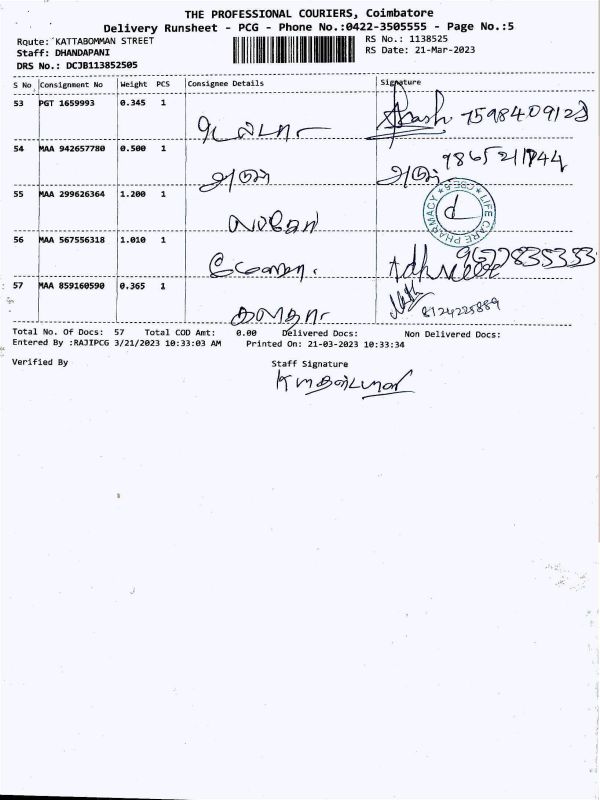 THE PROFESSIONAL COURIERS, Coimbatore
Delivery Runsheet - PCG - Phone No.:0422-3505555 - Page No.:5
Route: KATTABOMMAN STREET
RS No.: 1138525
Staff: DHANDAPANI
RS Date: 21-Mar-2023
DRS No.: DCJB113852505
S No Consignment No Weight PCS Consignee Details Signature
53 PGT 1659993 0.345 1
7598409128
54 MAA 942657780 0.500 1
அருண் அருண்
55 MAA 299626364 1.200 1
LIFE CARE PHARMACY
56 MAA 567556318 1.010 1
9677835333
57 MAA 859160590 0.365 1
8124225889
Total No. Of Docs: 57 Total COD Amt: 0.00 Delivered Docs: Non Delivered Docs:
Entered By :RAJIPCG 3/21/2023 10:33:03 AM Printed On: 21-03-2023 10:33:34
Verified By Staff Signature